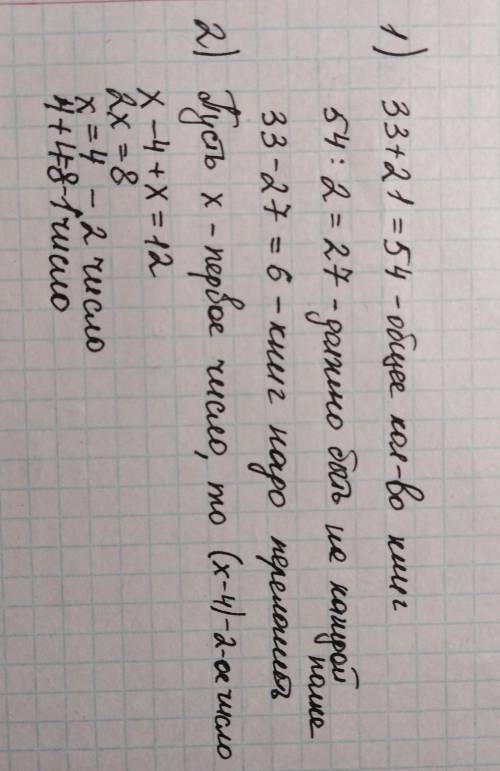 1) 33+21=54 - общее кол-во книг
54:2=27 - должно быть на каждой полке
33-27=6 - книг надо переложить
2) Пусть х - первое число, то (х-4)-2-ое число
х-4+х=12
2х=8
х=4 - 2 число
4+4=8-1 число